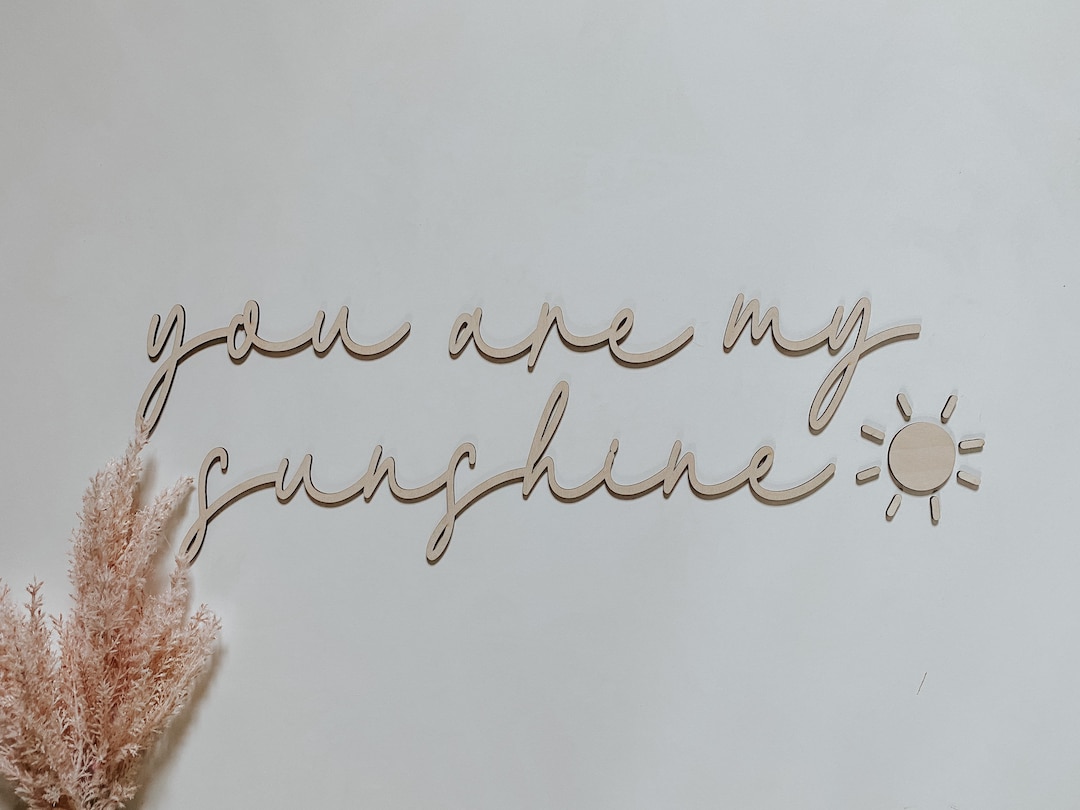 you are my
sunshine